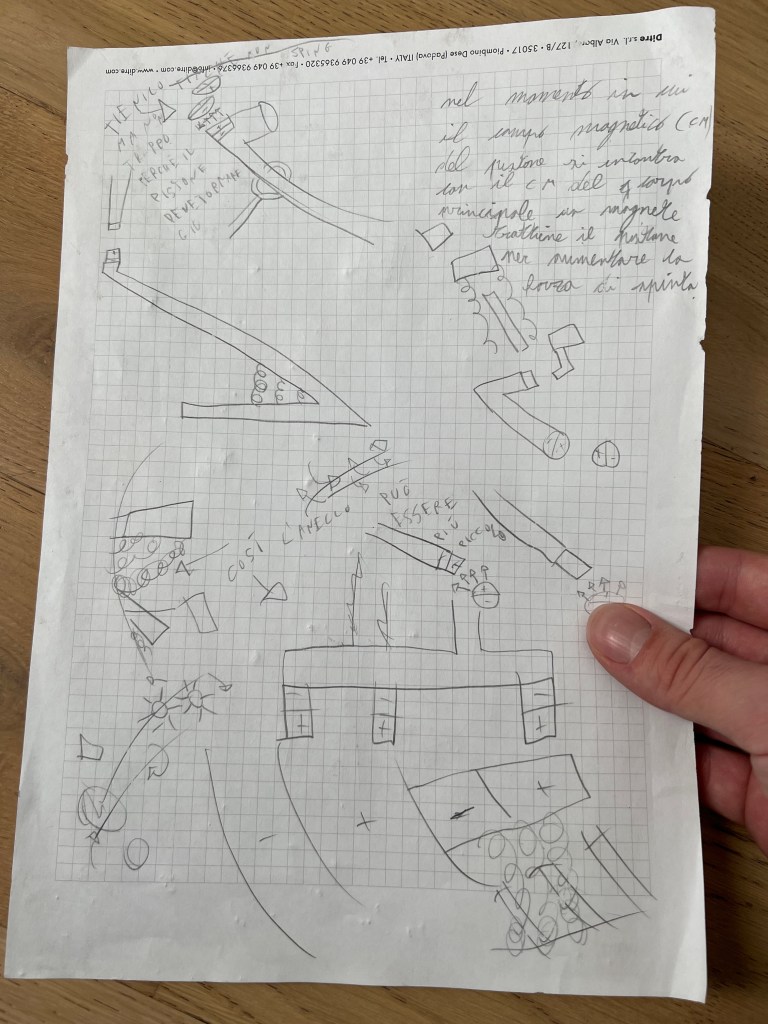 Ditre s.r.l. Via Albare, 127/B • 35017 • Piombino Dese (Padova) ITALY • Tel. +39 049 9365320 • Fax +39 049 9365376 • info@ditre.com • www.ditre.com
SPINGE
TIENICO
MA NON
TROPPO
PERCHÉ IL
PISTONE
DEVE
nel momento in cui
il campo magnetico (CM)
del pistone si incontra
con il CM del corpo
principale un magnete
trattiene il pistone
per aumentare la
forza di spinta
+ -
COSÌ L'ANELLO PUÒ
ESSERE
PIÙ
PICCOLO
+
+
-
- - -
+ + +
- +
- +